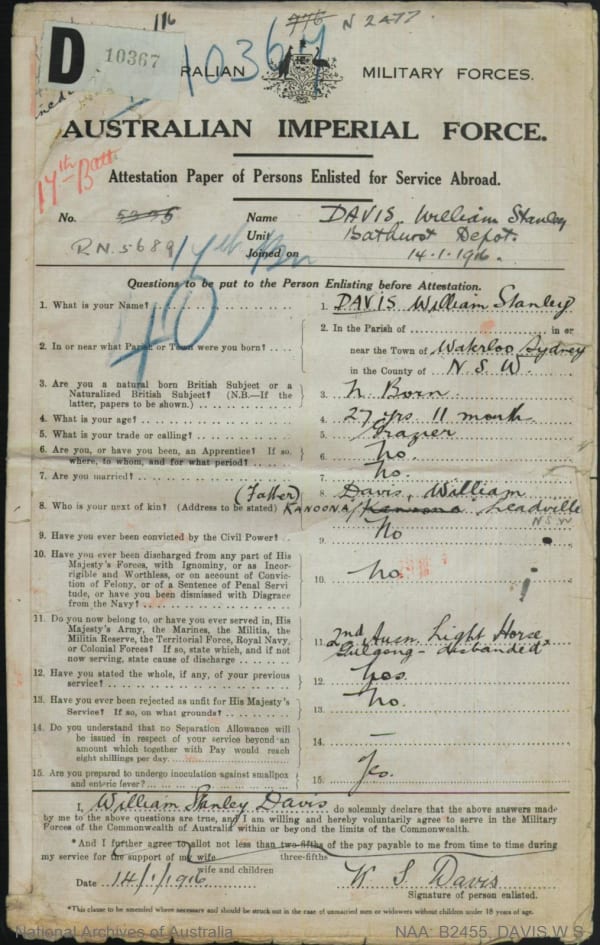 116 976 N 2477
D 10367
RALIAN MILITARY FORCES.
10367
AUSTRALIAN IMPERIAL FORCE.
17th Batt
Attestation Paper of Persons Enlisted for Service Abroad.
No. Name DAVIS William Stanley
R.N. 5689 Unit Bathurst Depot.
17th Bn Joined on 14.1.1916.
Questions to be put to the Person Enlisting before Attestation.
1. What is your Name? 1. DAVIS William Stanley
2. In or near what Parish or Town were you born? 2. In the Parish of in or
near the Town of Waterloo Sydney
in the County of N S W.
3. Are you a natural born British Subject or a
Naturalized British Subject? (N.B.—If the
latter, papers to be shown.) 3. N Born.
4. What is your age? 4. 27 yrs 11 month
5. What is your trade or calling? 5. Grazier
6. Are you, or have you been, an Apprentice? If so,
where, to whom, and for what period? 6. No.
7. Are you married? 7. No.
(Father) 8 Davis, William
8. Who is your next of kin? (Address to be stated) KANOONA / Kanoona Leadville
N.S.W
9. Have you ever been convicted by the Civil Power? 9. No
10. Have you ever been discharged from any part of His
Majesty's Forces, with Ignominy, or as Incor-
rigible and Worthless, or on account of Convic-
tion of Felony, or of a Sentence of Penal Servi
tude, or have you been dismissed with Disgrace
from the Navy? 10. No.
11. Do you now belong to, or have you ever served in, His
Majesty's Army, the Marines, the Militia, the
Militia Reserve, the Territorial Force, Royal Navy,
or Colonial Forces? If so, state which, and if not
now serving, state cause of discharge 11. 2nd Light Horse
Gulgong - disbanded
12. Have you stated the whole, if any, of your previous
service? 12. Yes.
13. Have you ever been rejected as unfit for His Majesty's
Service? If so, on what grounds? 13. No.
14. Do you understand that no Separation Allowance will
be issued in respect of your service beyond an
amount which together with Pay would reach
eight shillings per day. 14. —
15. Are you prepared to undergo inoculation against smallpox
and enteric fever? 15. Yes.
I, William Stanley Davis do solemnly declare that the above answers made
by me to the above questions are true, and I am willing and hereby voluntarily agree to serve in the Military
Forces of the Commonwealth of Australia within or beyond the limits of the Commonwealth.
*And I further agree to allot not less than two-fifths of the pay payable to me from time to time during
three-fifths
my service for the support of my wife
wife and children
Date 14/1/1916 W S Davis
Signature of person enlisted.
*This clause to be amended where necessary and should be struck out in the case of unmarried men or widowers without children under 18 years of age.
National Archives of Australia NAA: B2455, DAVIS W S